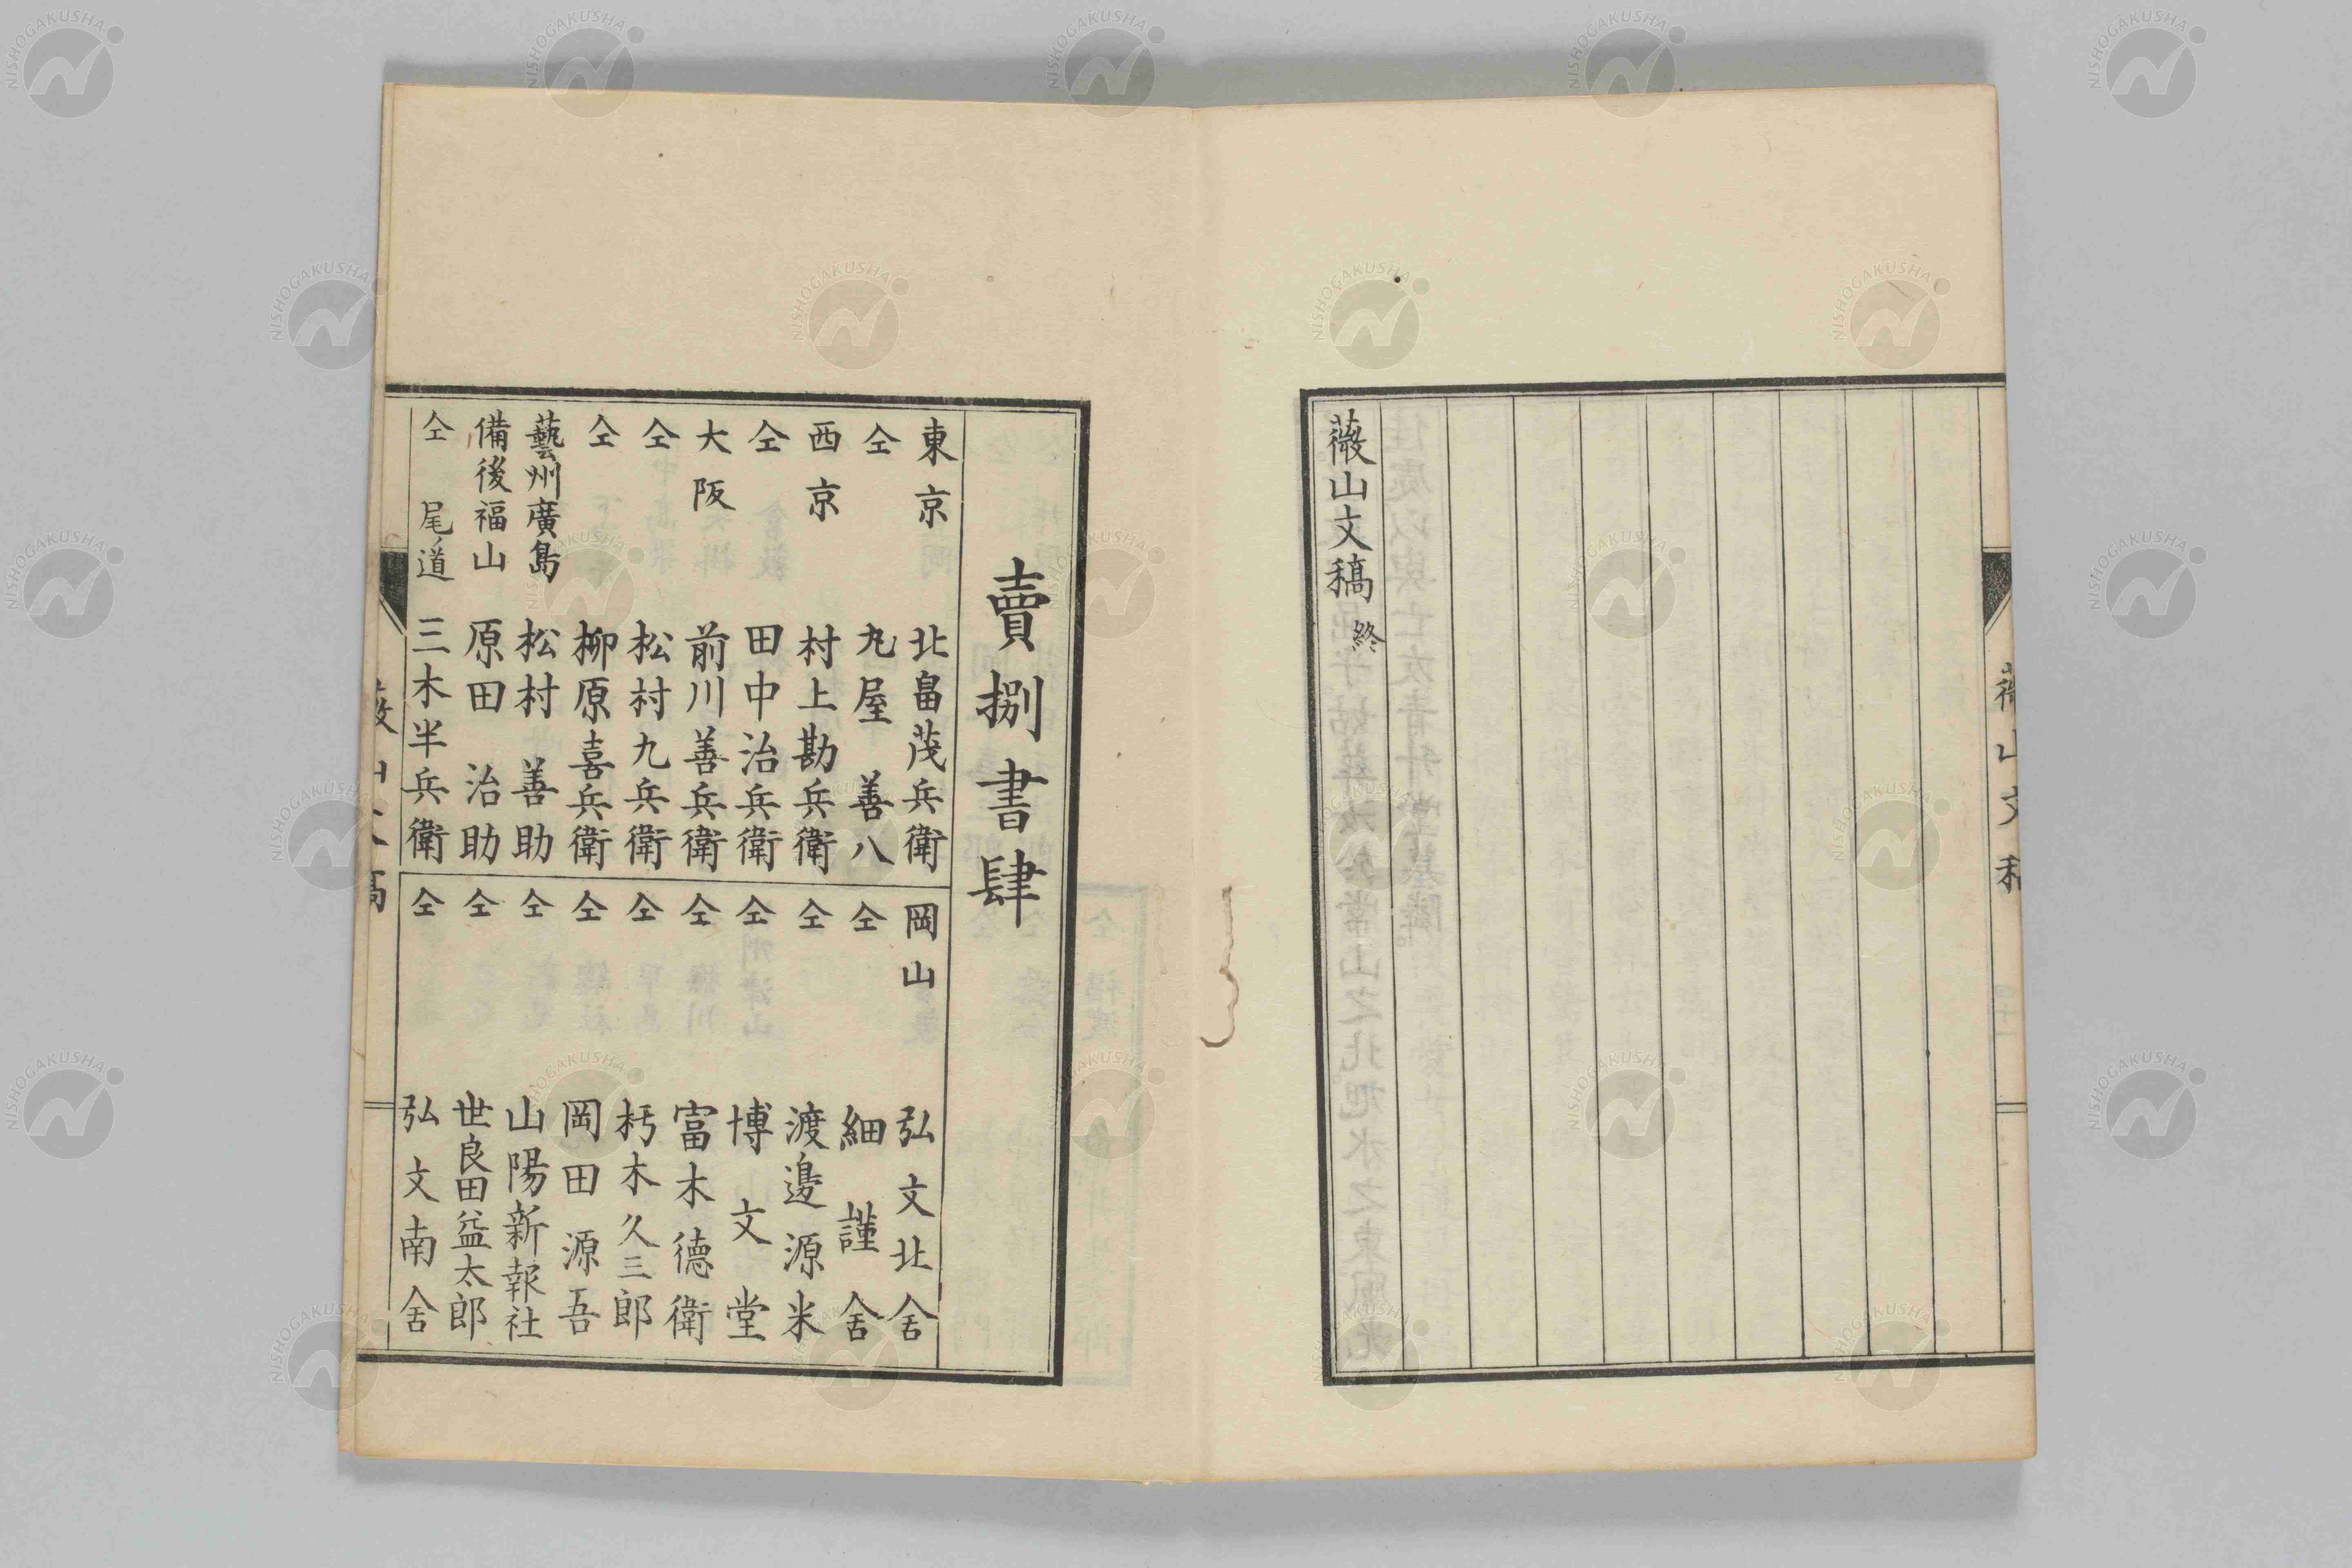 薇山文稿
薇山文稿 終
賣捌書肆
東京 北畠茂兵衛
仝 丸屋善八
西京 村上勘兵衛
仝 田中治兵衛
大阪 前川善兵衛
仝 松村九兵衛
仝 柳原喜兵衛
藝州廣島 松村善助
備後福山 原田治助
仝 尾道 三木半兵衛
岡山 弘文北舍
仝 細謹舍
仝 渡邊源米
仝 博文堂
仝 富木德衛
仝 杤木久三郎
仝 岡田源吾
仝 山陽新報社
仝 世良田益太郎
仝 弘文南舍
薇山文稿
NISHOGAKUSHA